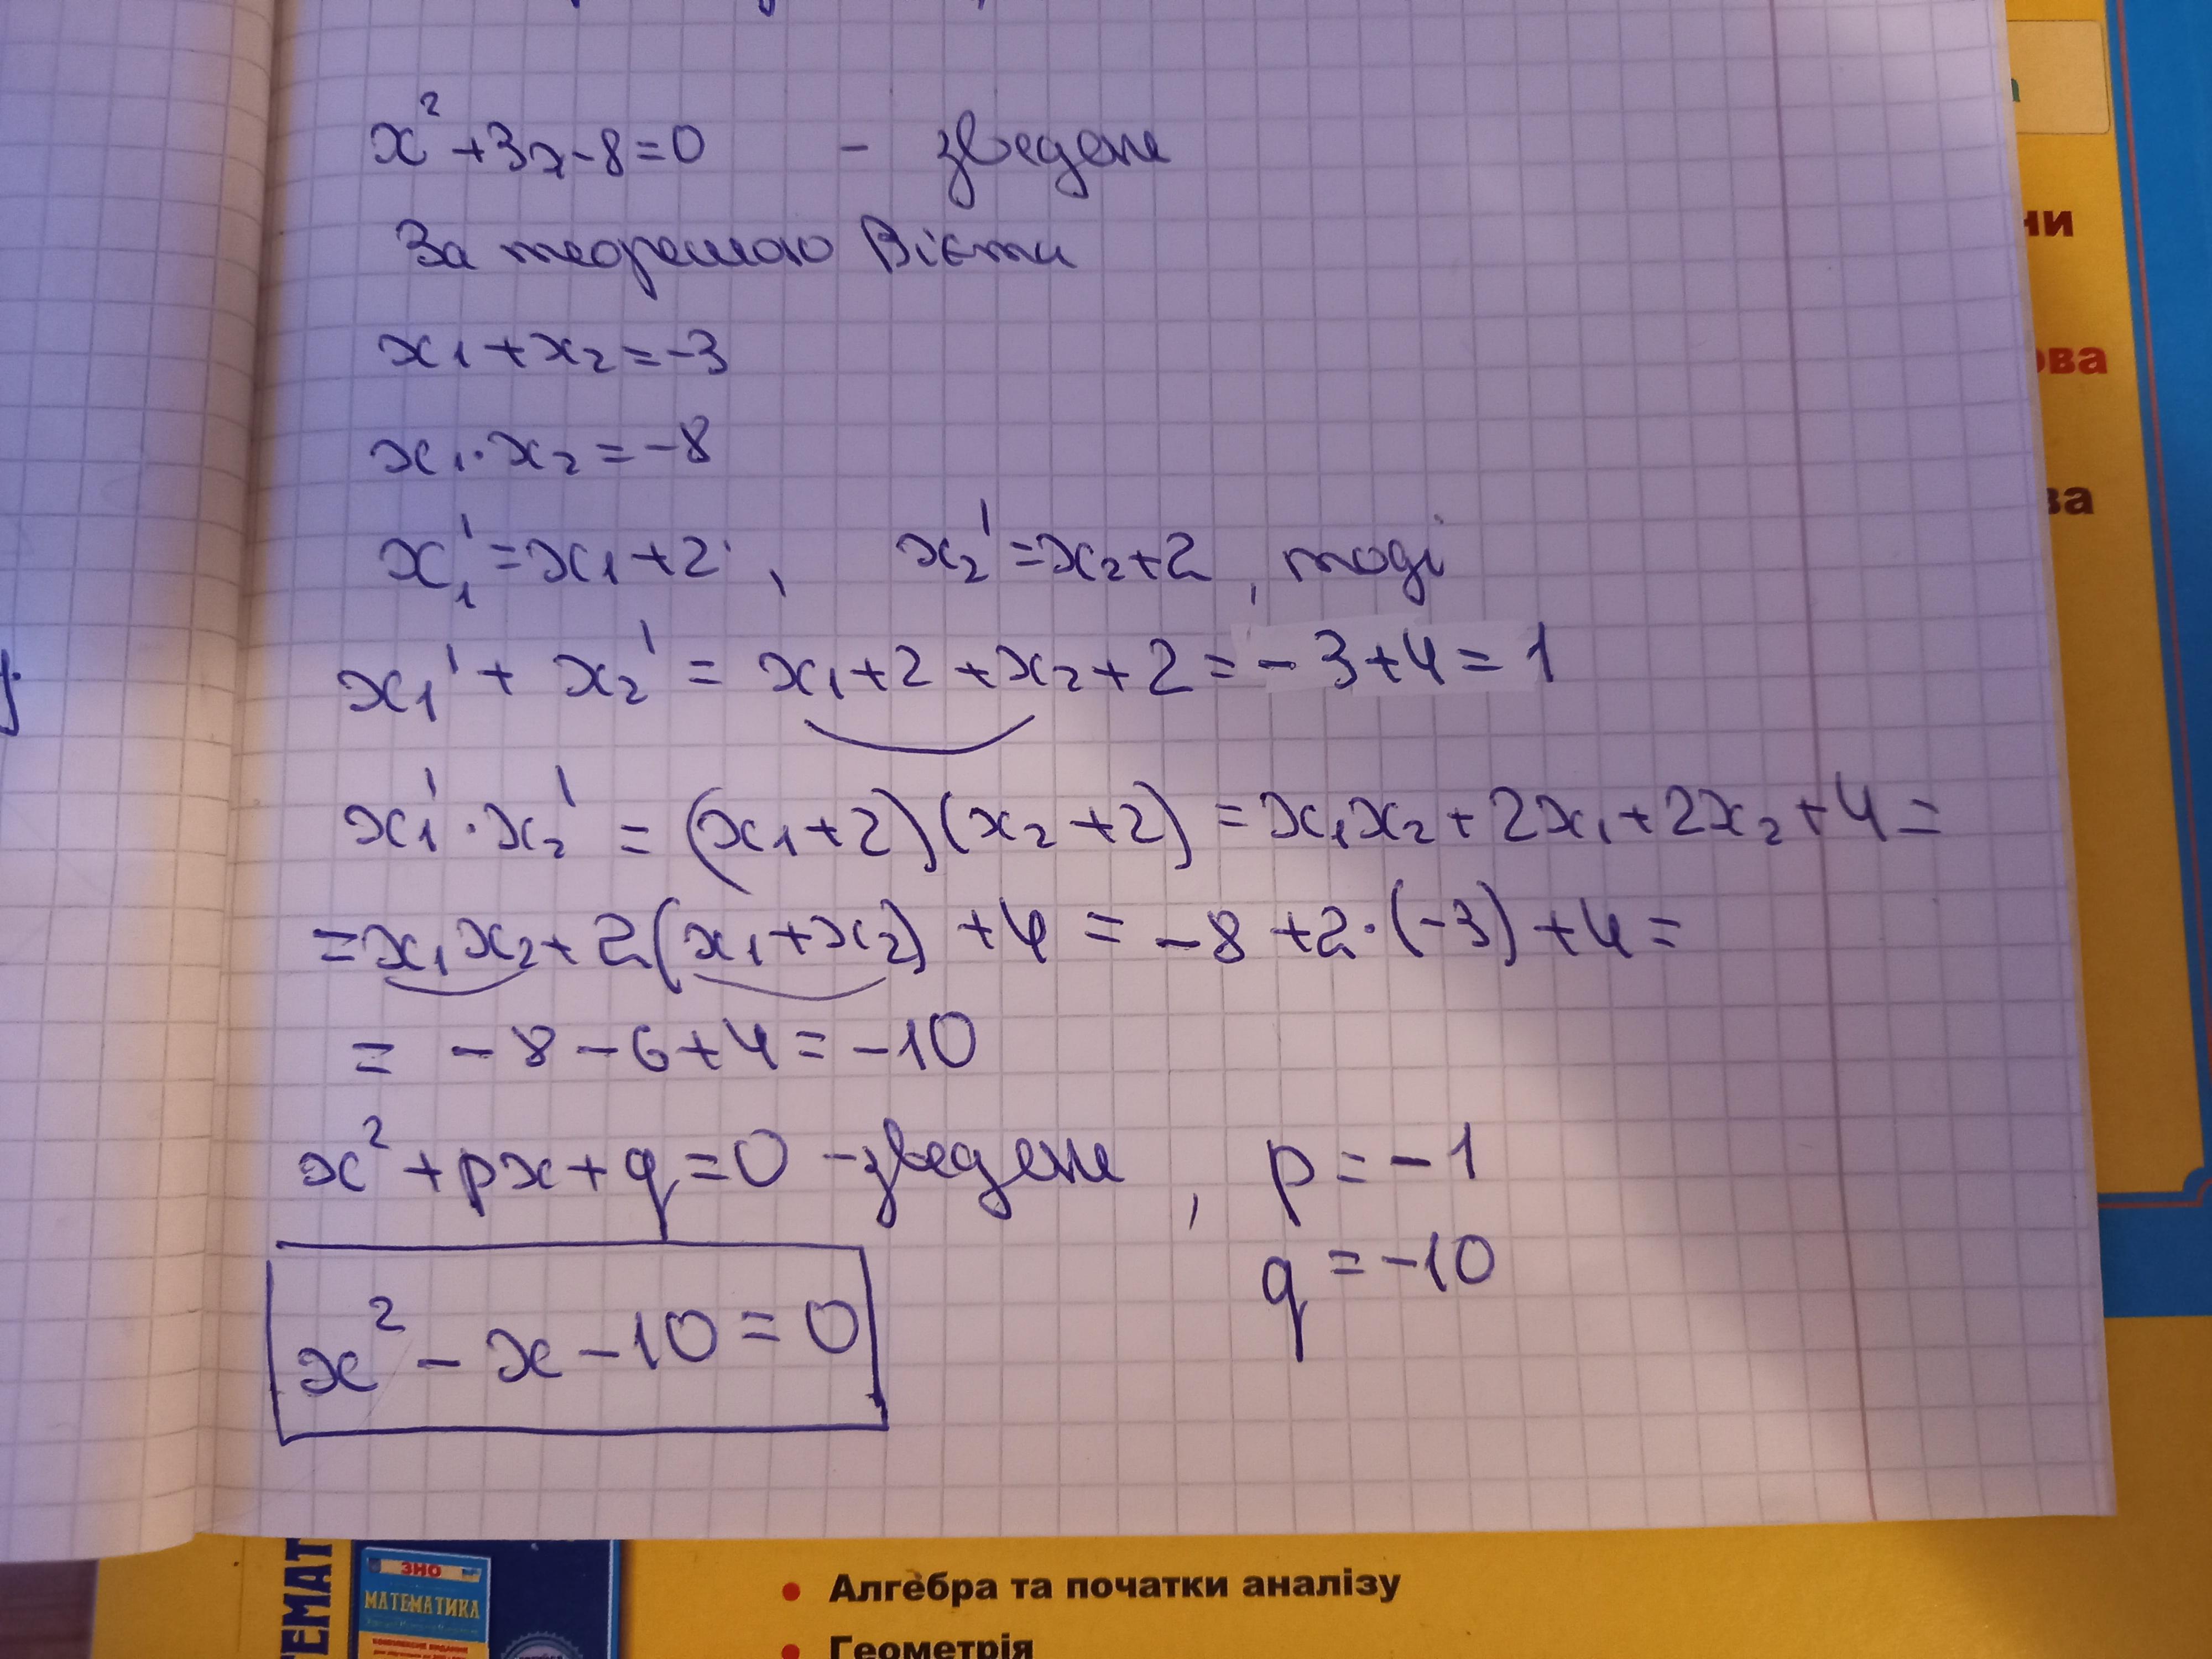 x² + 3x - 8 = 0 - зведене
За теоремою Вієти
x₁ + x₂ = -3
x₁ · x₂ = -8
x₁' = x₁ + 2, x₂' = x₂ + 2, тоді
x₁' + x₂' = x₁ + 2 + x₂ + 2 = -3 + 4 = 1
x₁' · x₂' = (x₁ + 2)(x₂ + 2) = x₁x₂ + 2x₁ + 2x₂ + 4 =
= x₁x₂ + 2(x₁ + x₂) + 4 = -8 + 2·(-3) + 4 =
= -8 - 6 + 4 = -10
x² + px + q = 0 - зведене, p = -1
q = -10
x² - x - 10 = 0
ЗНО
МАТЕМАТИКА
• Алгебра та початки аналізу
• Геометрія